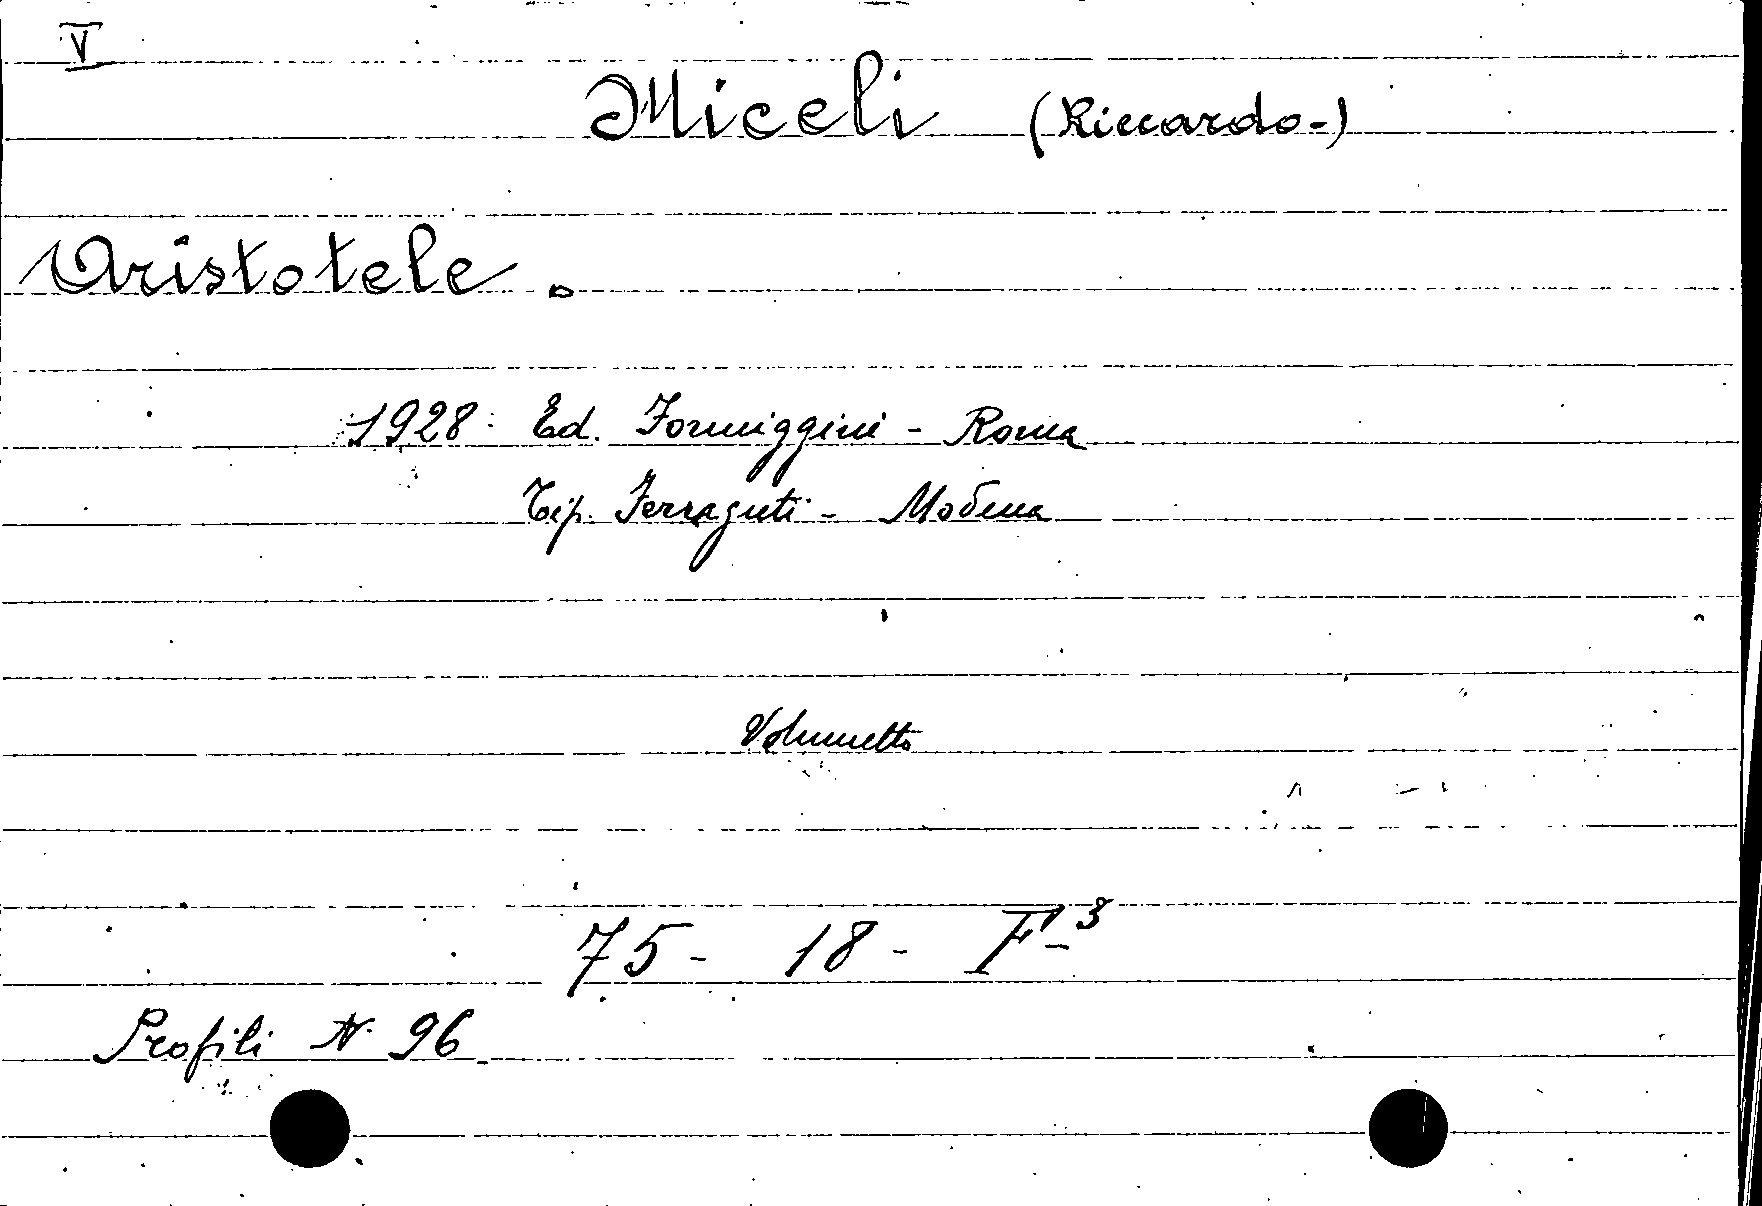 V
Miceli (Riccardo-)
Aristotele.
1928. Ed. Formiggini - Roma
Tip. Ferraguti - Modena
Volumetto
75 - 18 - F-3
Profili N. 96